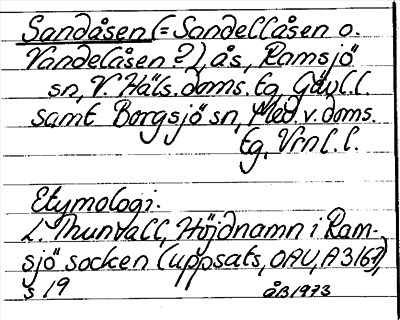 Sandåsen (= Sandellåsen o.
Vandelåsen?), ås, Ramsjö
sn, V. Häls. doms. tg, Gävl. l.
samt Borgsjö sn, Med. v. doms.
tg, Vrnl. l.
Etymologi.
L. Thunvall, Höjdnamn i Ram-
sjö socken (uppsats, OAU, A 3167),
s 19
ÅB 1973